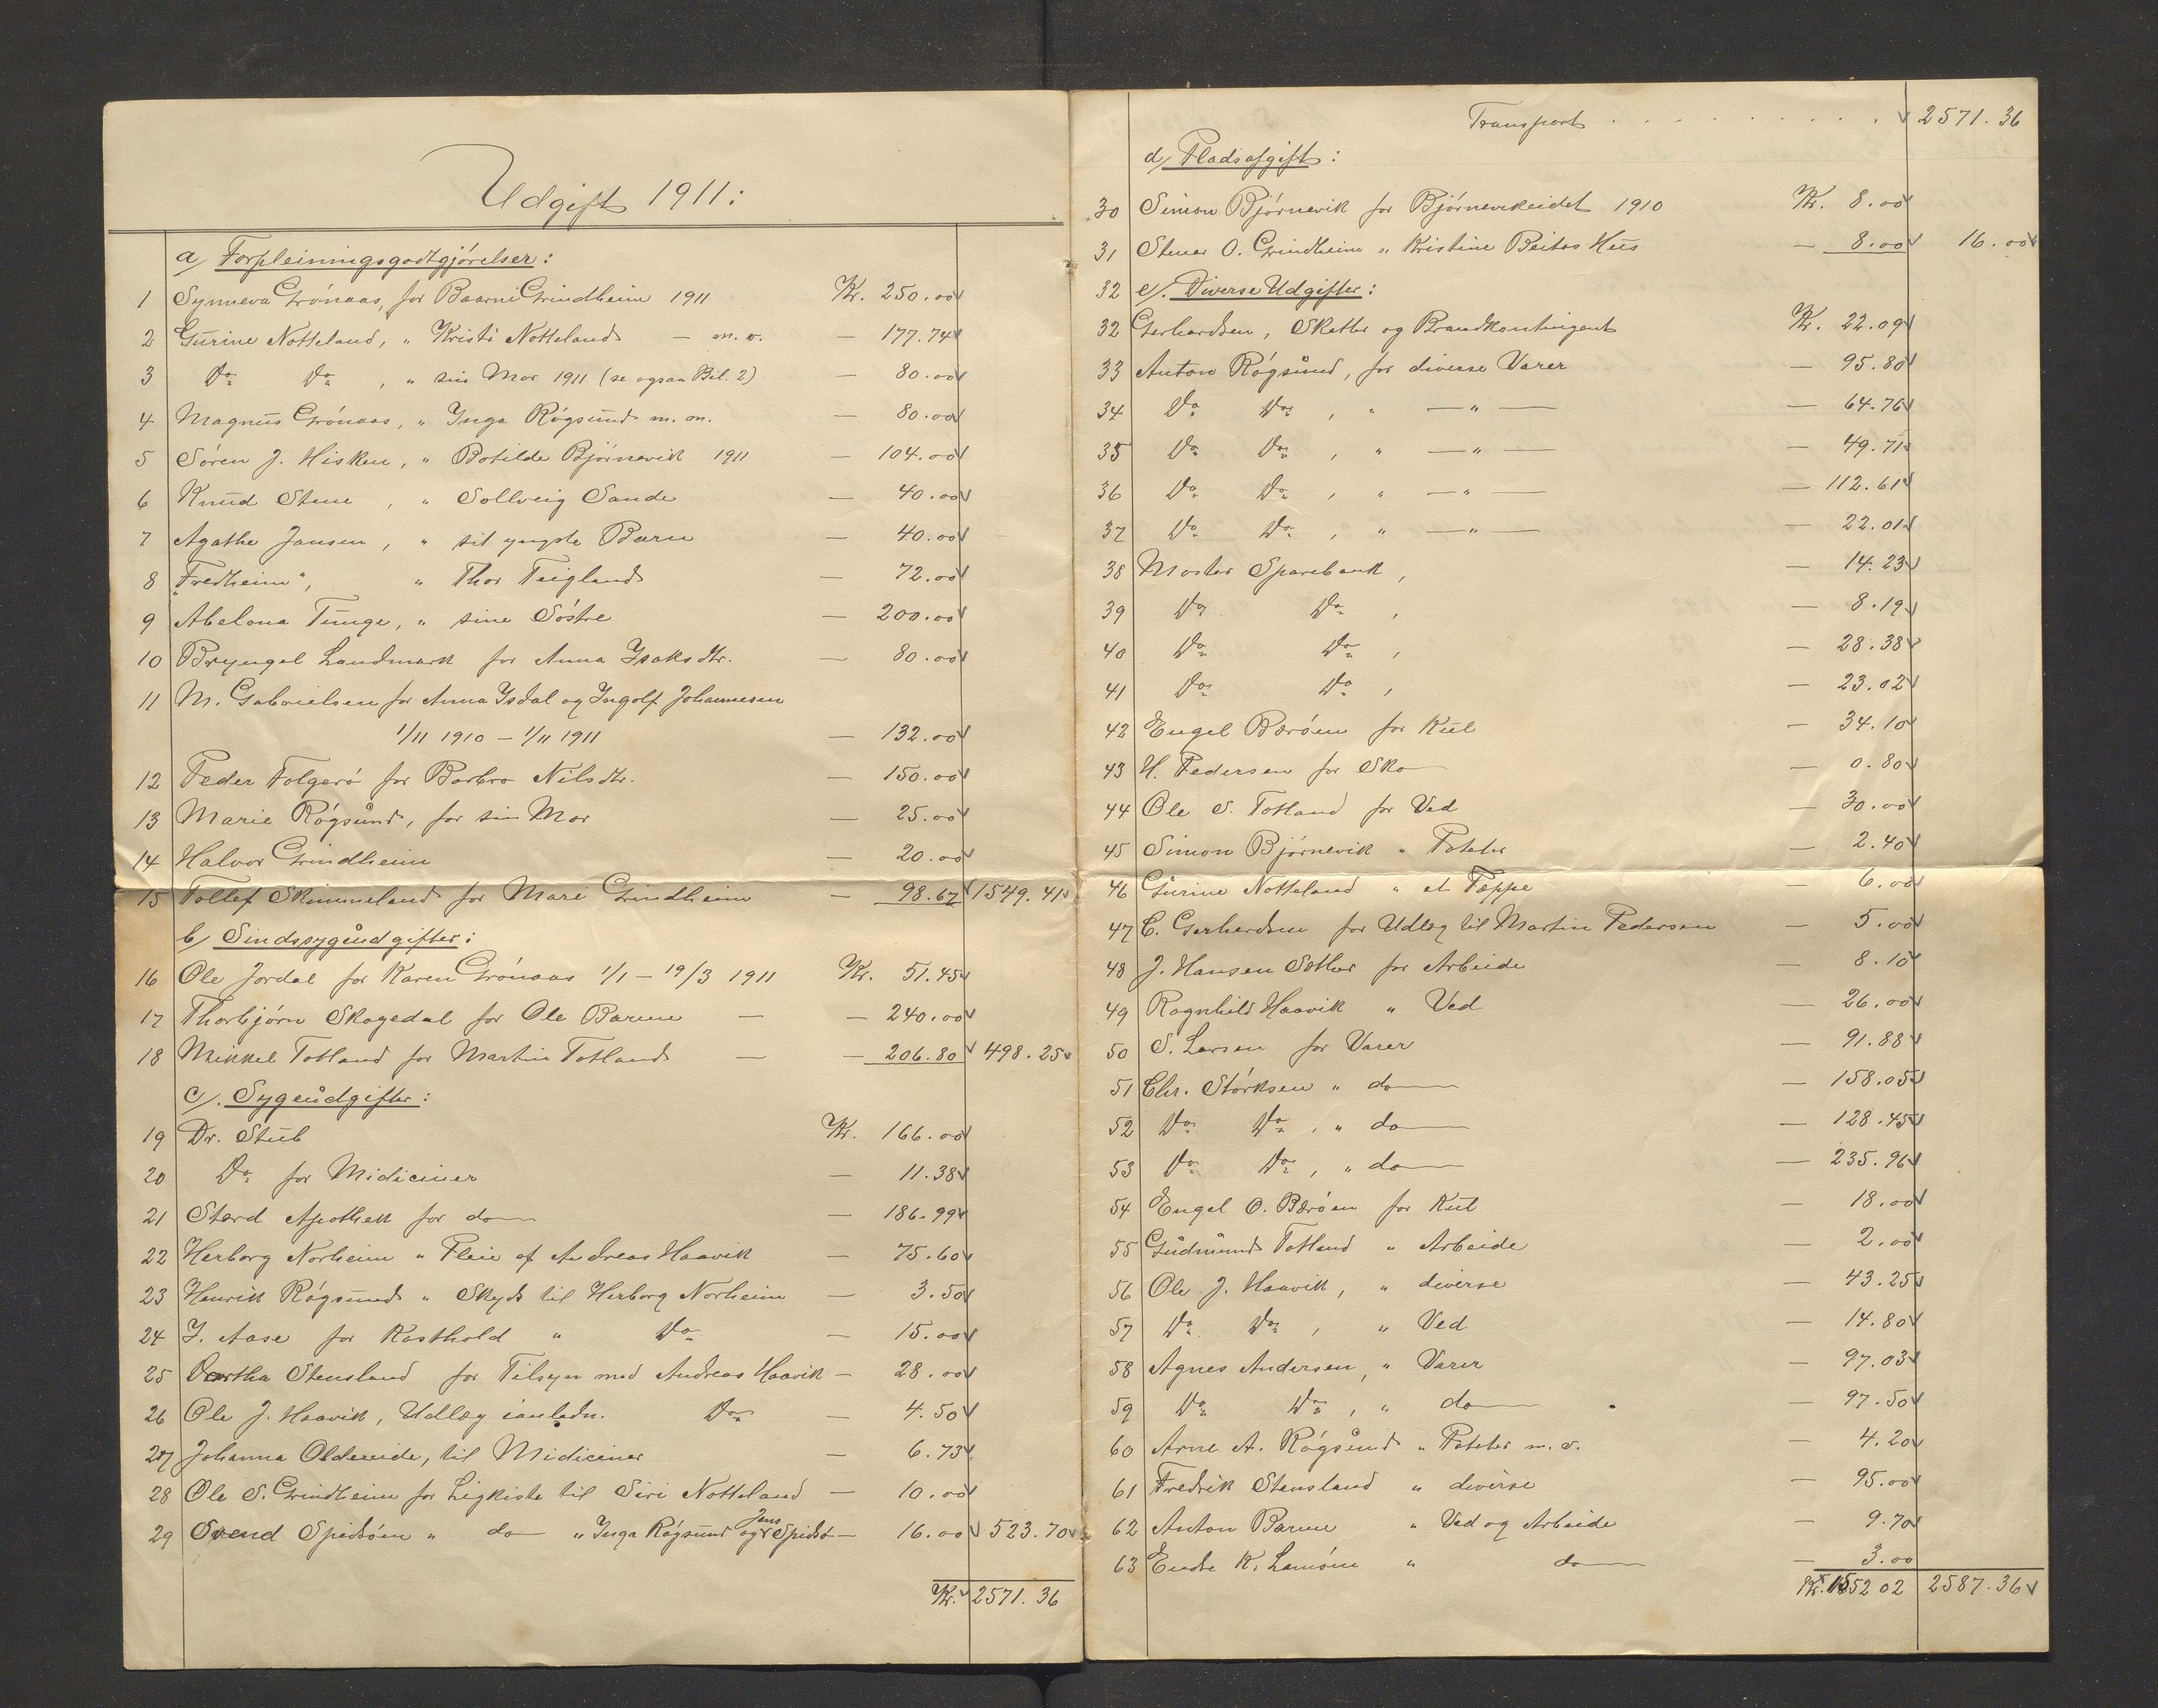 Udgift 1911:
a/ Forpleiningsgodtgjörelser:
1 Synneva Grönaas, for Baarni Grindheim 1911 Kr. 250.00
2 Gurine Notteland, " Kristi Notteland — m. v. — 177.74
3 Do Do , " sin Mor 1911 (se ogsaa Bil. 2) — 80.00
4 Magnus Grönaas, " Inga Rögsund m. m. — 80.00
5 Sören J. Hisken, " Botilde Björnevik 1911 — 104.00
6 Knud Stene , " Sollveig Sande — 40.00
7 Agathe Jansen, " sit yngste Barn — 40.00
8 "Fredheim", " Thor Teigland — 72.00
9 Abelona Tunge, " sine Söstre — 200.00
10 Bryngel Landmark for Anna Isaksdtr. — 80.00
11 M. Gabrielsen for Anna Isdal og Ingolf Johannesen
1/11 1910 — 1/11 1911 — 132.00
12 Peder Folgerö for Barbro Nilsdtr. — 150.00
13 Marie Rögsund, for sin Mor — 25.00
14 Halvor Grindheim — 20.00
15 Tollef Skimmeland for Mari Grindheim — 98.67 1549.41
b/ Sindssygeudgifter:
16 Ole Jordal for Karen Grönaas 1/1 — 19/3 1911 Kr. 51.45
17 Thorbjörn Skogedal for Ole Barme — — 240.00
18 Mikkel Totland for Martin Totland — — 206.80 498.25
c/. Sygeudgifter:
19 Dr. Stub Kr. 166.00
20 Do for Midiciner — 11.38
21 Stord Apothek for do — 186.99
22 Herborg Norheim " Pleie af Andreas Haavik — 75.60
23 Henrik Rögsund " Skyds til Herborg Norheim — 3.50
24 J. Aase for Kosthold " Do — 15.00
25 Bertha Stensland for Tilsyn med Andreas Haavik — 28.00
26 Ole J. Haavik, Udlæg ianledn. Do — 4.50
27 Johanna Oldereide, til Midiciner — 6.73
28 Ole S. Grindheim for Ligkiste til Siri Notteland — 10.00
29 Svend Spidsöen " do " Inga Rögsund og Jens Spidsö — 16.00 523.70
Kr. 2571.36
Transport . . . . . . . . . 2571.36
d/ Pladsafgift:
30 Simon Björnevik for Björneviкeidet 1910 Kr. 8.00
31 Stener O. Grindheim " Kristine Beitos Hus — 8.00 16.00
32 e/. Diverse Udgifter:
32 Gerhardsen, Skatter og Brandkontingent Kr. 22.09
33 Anton Rögsund, for diverse Varer — 95.80
34 Do Do , " — " — — 64.76
35 Do Do , " — " — — 49.71
36 Do Do , " — " — — 112.61
37 Do Do , " — " — — 22.01
38 Moster Sparebank , — 14.23
39 Do Do , — 8.19
40 Do Do , — 28.38
41 Do Do , — 23.02
42 Engel Bæröen for Kul — 34.10
43 H. Pedersen for Sko — 0.80
44 Ole S. Totland for Ved — 30.00
45 Simon Björnevik " Poteter — 2.40
46 Gurine Notteland " et Tæppe — 6.00
47 C. Gerhardsen for Udlæg til Martin Pedersen — 5.00
48 J. Hansen Sæther for Arbeide — 8.10
49 Ragnhild Haavik " Ved — 26.00
50 S. Larsen for Varer — 91.88
51 Chr. Störksen " do — 158.05
52 Do Do , " do — 128.45
53 Do Do , " do — 235.96
54 Engel O. Bæröen for Kul — 18.00
55 Gudmund Totland " Arbeide — 2.00
56 Ole J. Haavik, " diverse — 43.25
57 Do Do , " Ved — 14.80
58 Agnes Andersen, " Varer — 97.03
59 Do Do , " do — 97.50
60 Arne A. Rögsund " Poteter m. v. — 4.20
61 Fredrik Stensland " diverse — 95.00
62 Anton Barme " Ved og Arbeide — 9.70
63 Endre K. Lamöen " do — 3.00
Kr. 1552 02 2587.36